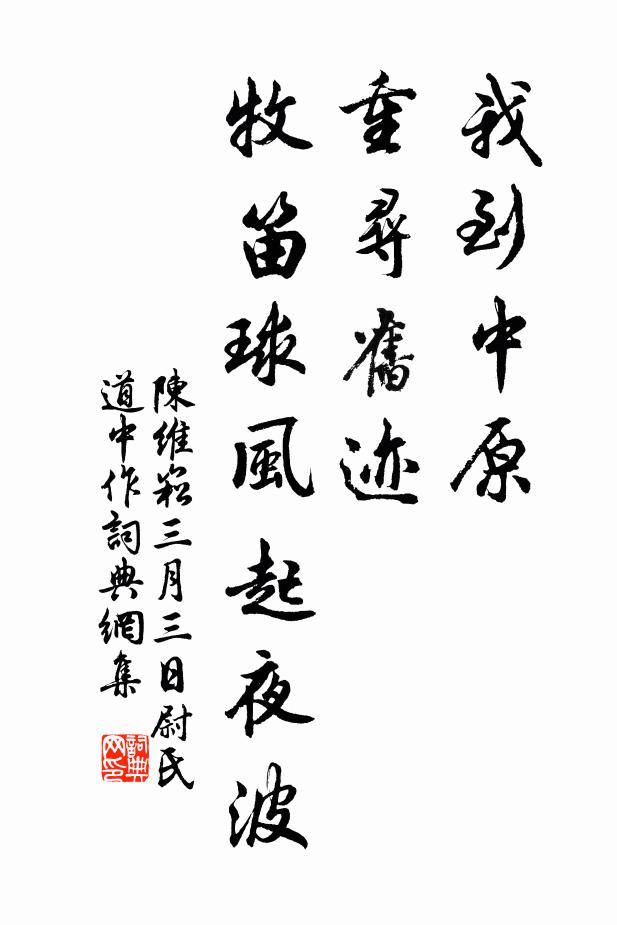 我到中原
重尋舊迹
牧笛球風起夜波
陳維崧三月三日尉氏
道中作詞典網集
詞典
网印